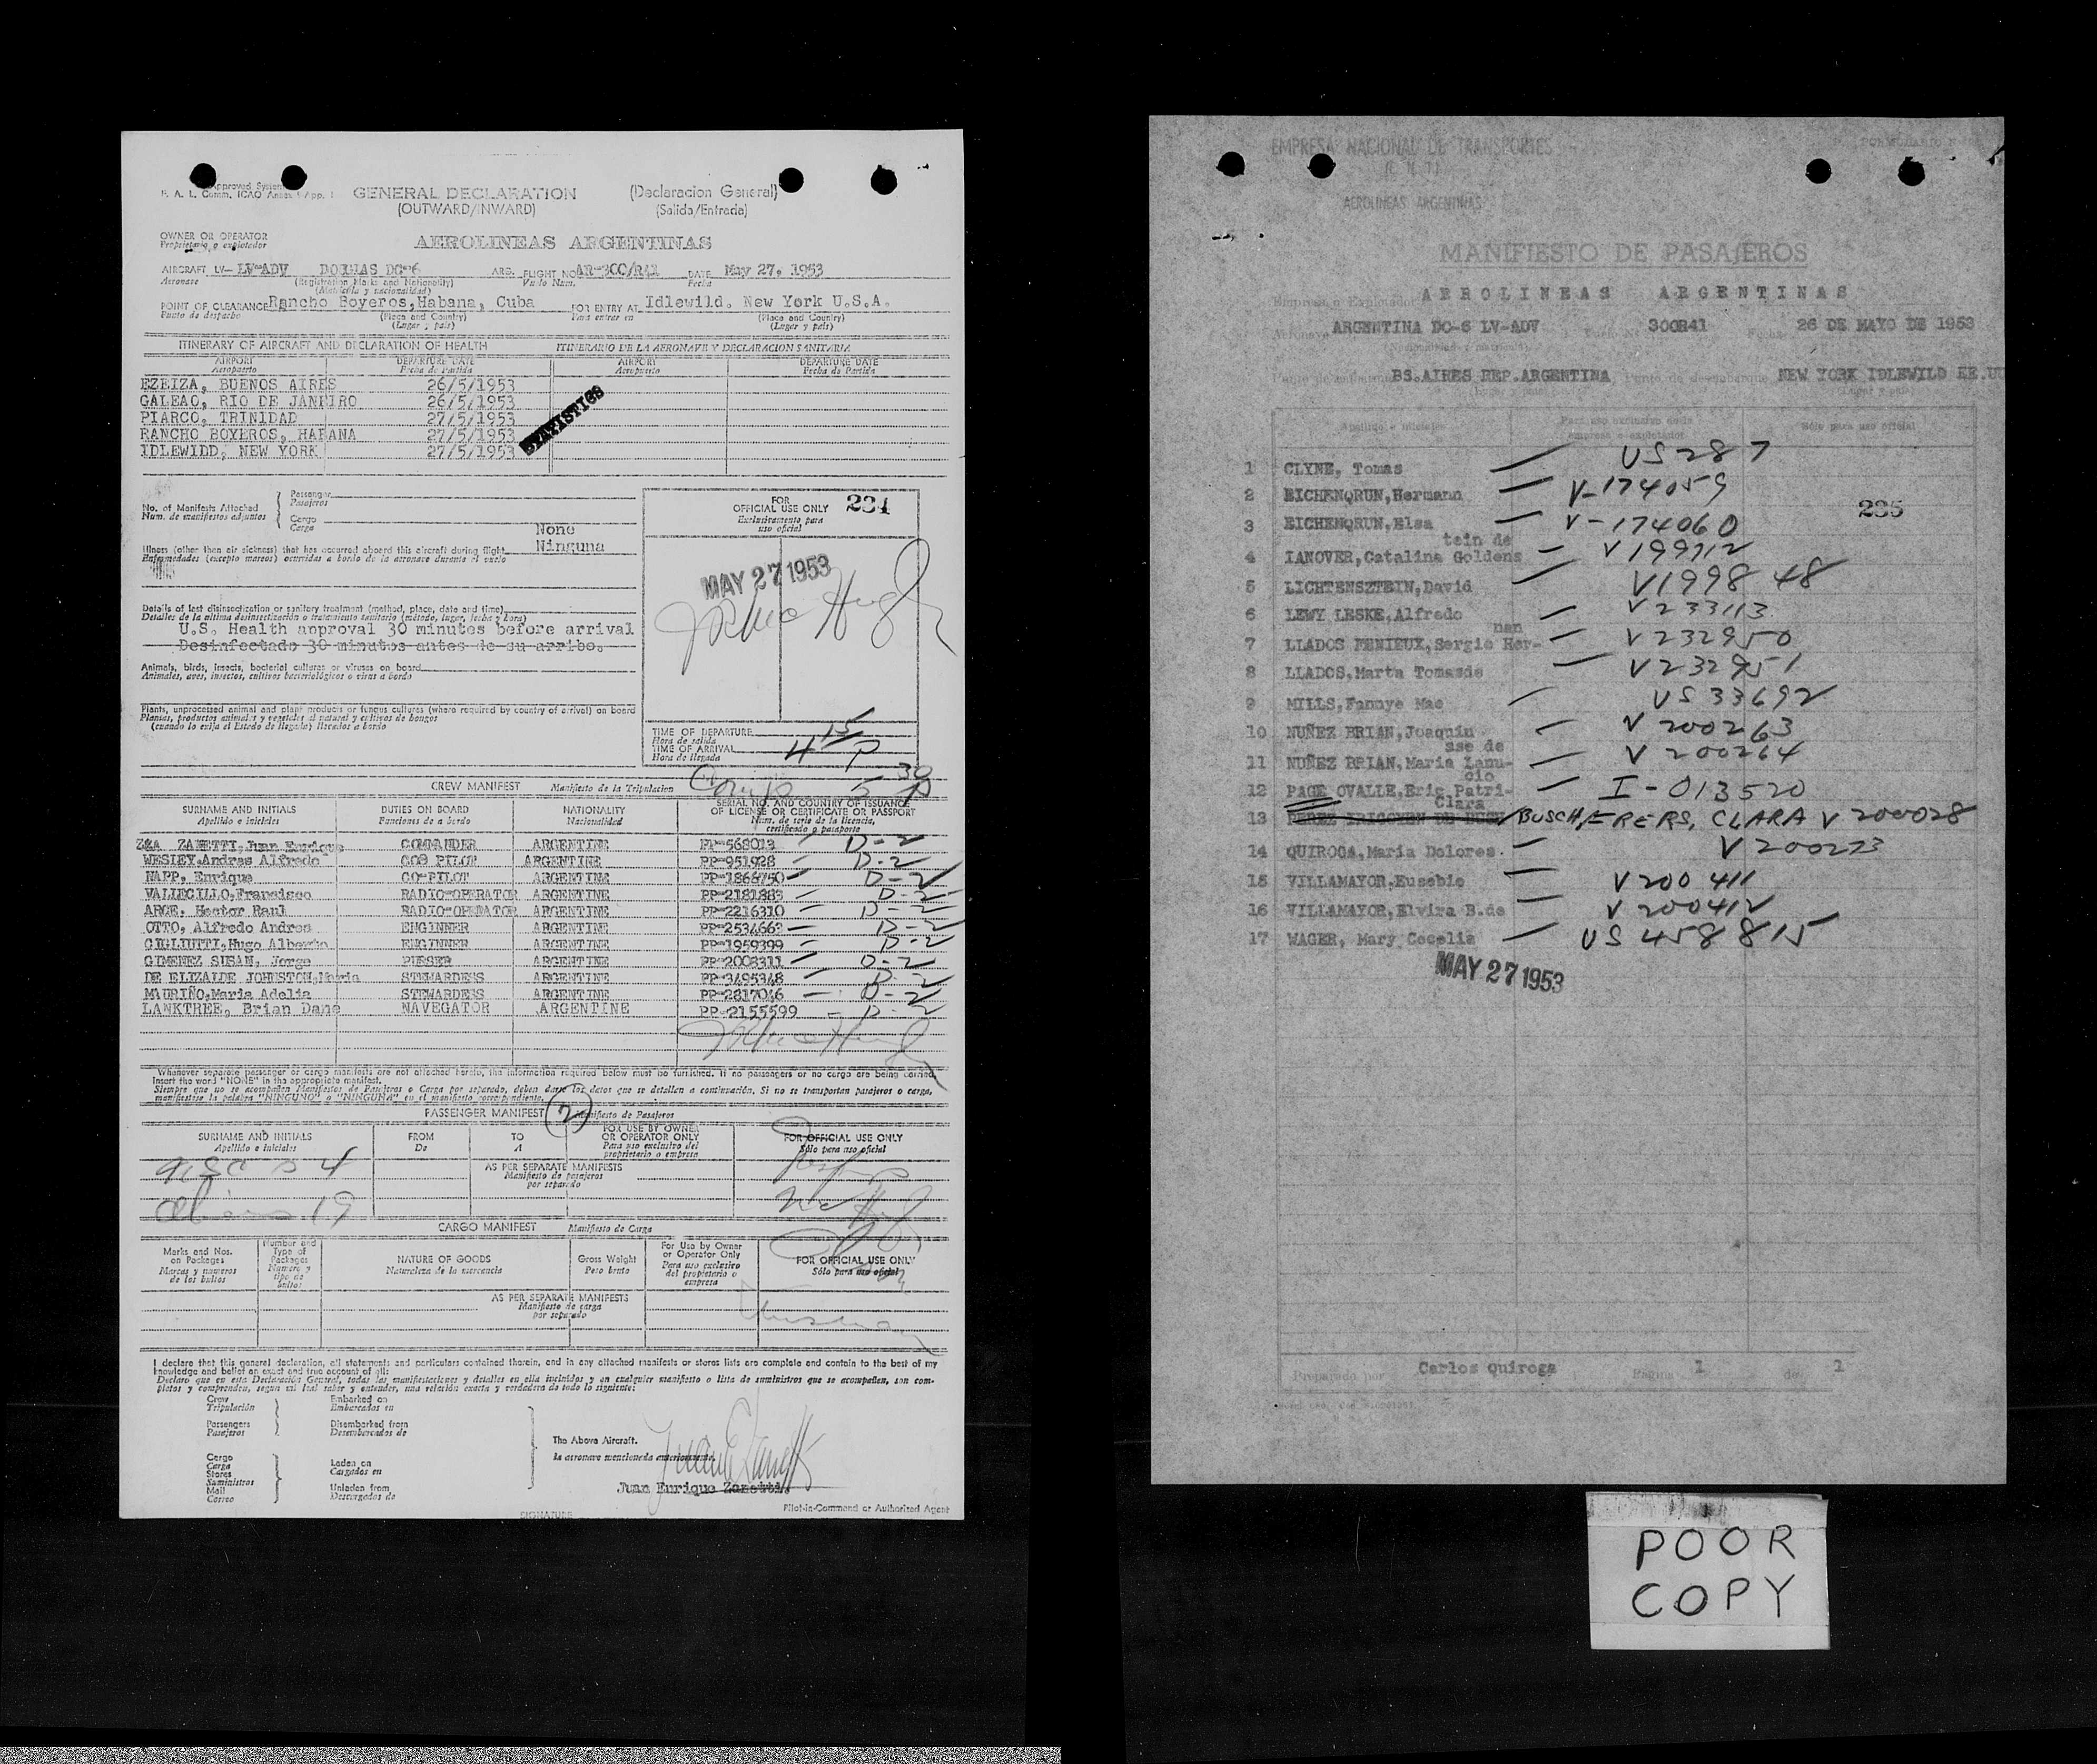 GENERAL DECLARATION (Declaracion General)
(OUTWARD/INWARD) (Salida/Entrada)
OWNER OR OPERATOR
Propietario o explotador
AEROLINEAS ARGENTINAS
AIRCRAFT LV- LV-ADV DOUGLAS DC-6 ARG. FLIGHT NO AR-300/R41 DATE May 27, 1953
Aeronave (Registration Marks and Nationality) Vuelo Num. Fecha
(Matrícula y nacionalidad)
POINT OF CLEARANCE Rancho Boyeros, Habana, Cuba FOR ENTRY AT Idlewild, New York U.S.A.
Punto de despacho (Place and Country) Para entrar en (Place and Country)
(Lugar y país) (Lugar y país)
ITINERARY OF AIRCRAFT AND DECLARATION OF HEALTH ITINERARIO DE LA AERONAVE Y DECLARACION SANITARIA
AIRPORT DEPARTURE DATE AIRPORT DEPARTURE DATE
Aeropuerto Fecha de Partida Aeropuerto Fecha de Partida
EZEIZA, BUENOS AIRES 26/5/1953
GALEAO, RIO DE JANEIRO 26/5/1953
PIARCO, TRINIDAD 27/5/1953
RANCHO BOYEROS, HABANA 27/5/1953
IDLEWILD, NEW YORK 27/5/1953
STATISTICS
No. of Manifests Attached Passenger
Num. de manifiestos adjuntos Pasajeros
Cargo
Carga
None
Illness (other than air sickness) that has occurred aboard this aircraft during flight Ninguna
Enfermedades (excepto mareos) ocurridas a bordo de la aeronave durante el vuelo
FOR
OFFICIAL USE ONLY 234
Exclusivamente para
uso oficial
MAY 27 1953
Details of last disinsectization or sanitary treatment (method, place, date and time)
Detalles de la última desinsectización o tratamiento sanitario (método, lugar, fecha y hora)
U.S. Health approval 30 minutes before arrival
Desinfectado 30 minutos antes de su arribo.
Animals, birds, insects, bacterial cultures or viruses on board
Animales, aves, insectos, cultivos bacteriológicos o virus a bordo
Plants, unprocessed animal and plant products or fungus cultures (where required by country of arrival) on board
Plantas, productos animales y vegetales al natural y cultivos de hongos
(cuando lo exija el Estado de llegada) llevados a bordo
TIME OF DEPARTURE
Hora de salida
TIME OF ARRIVAL 4 15 P
Hora de llegada
CREW MANIFEST Manifiesto de la Tripulacion 5 30 P
SURNAME AND INITIALS DUTIES ON BOARD NATIONALITY SERIAL NO. AND COUNTRY OF ISSUANCE
OF LICENSE OR CERTIFICATE OR PASSPORT
Apellido e iniciales Funciones de a bordo Nacionalidad Num. de serie de la licencia,
certificado o pasaporte
ZANETTI, Juan Enrique COMMANDER ARGENTINE PP-568013 D-2
WESLEY, Andres Alfredo COO PILOT ARGENTINE PP-951928 D-2
NAPP, Enrique CO-PILOT ARGENTINE PP-1866750 D-2
VALLECILLO, Francisco RADIO-OPERATOR ARGENTINE PP-2181883 D-2
ARCE, Hector Raul RADIO-OPERATOR ARGENTINE PP-2216310 D-2
OTTO, Alfredo Andres ENGINNER ARGENTINE PP-2534663 D-2
GIGLIUTTI, Hugo Alberto ENGINNER ARGENTINE PP-1959399 D-2
GIMENEZ SUSAN, Jorge PURSER ARGENTINE PP-2008311 D-2
DE ELIZALDE JOHNSTON, Maria STEWARDESS ARGENTINE PP-3495348 D-2
MAURIÑO, Maria Adelia STEWARDESS ARGENTINE PP-2817046 D-2
LANKTREE, Brian Dane NAVEGATOR ARGENTINE PP-2155599 D-2
Whenever separate passenger or cargo manifests are not attached hereto, the information required below must be furnished. If no passengers or no cargo are being carried,
insert the word "NONE" in the appropriate manifest.
Siempre que no se acompañen Manifiestos de Pasajeros o Carga por separado, deben darse los datos que se detallan a continuación. Si no se transportan pasajeros o carga,
manifiéstese la palabra "NINGUNO" o "NINGUNA" en el manifiesto correspondiente.
PASSENGER MANIFEST 2 Manifiesto de Pasajeros
SURNAME AND INITIALS FROM TO FOR USE BY OWNER
OR OPERATOR ONLY FOR OFFICIAL USE ONLY
Apellido e iniciales De A Para uso exclusivo del
propietario o empresa Sólo para uso oficial
AS PER SEPARATE MANIFESTS
Manifiesto de pasajeros
por separado
4
19
CARGO MANIFEST Manifiesto de Carga
Marks and Nos.
on Packages
Marcas y números
de los bultos
Number and
Type of
Packages
Número y
tipo de
bultos
NATURE OF GOODS
Naturaleza de la mercancía
Gross Weight
Peso bruto
For Use by Owner
or Operator Only
Para uso exclusivo
del propietario o
empresa
FOR OFFICIAL USE ONLY
Sólo para uso oficial
AS PER SEPARATE MANIFESTS
Manifiesto de carga
por separado
I declare that this general declaration, all statements and particulars contained therein, and in any attached manifests or stores lists are complete and contain to the best of my
knowledge and belief an exact and true account of all:
Declaro que en esta Declaración General, todas las manifestaciones y detalles en ella incluídos y en cualquier manifiesto o lista de suministros que se acompañen, son com-
pletos y comprenden, según mi leal saber y entender, una relación exacta y verdadera de todo lo siguiente:
Crew Embarked on
Tripulación Embarcados en
Passengers Disembarked from
Pasajeros Desembarcados de
The Above Aircraft.
la aeronave mencionada anteriormente.
Cargo
Carga
Stores
Suministros
Mail
Correo
Laden on
Cargados en
Unladen from
Descargados de
Juan Enrique Zanetti
SIGNATURE Pilot-in-Command or Authorized Agent
EMPRESA NACIONAL DE TRANSPORTES
(E. N. T.)
AEROLINEAS ARGENTINAS
MANIFIESTO DE PASAJEROS
Empresa o Explotador AEROLINEAS ARGENTINAS
Aeronave ARGENTINA DC-6 LV-ADV 300R41 Fecha 26 DE MAYO DE 1953
BS.AIRES REP.ARGENTINA Punto de desembarque NEW YORK IDLEWILD EE.UU
Apellido e iniciales Para uso exclusivo de la
empresa o explotador Sólo para uso oficial
1 CLYNE, Tomas US 287
2 EICHENQRUN, Hermann V-174059
235
3 EICHENQRUN, Elsa V-174060
tein de
4 IANOVER, Catalina Goldens V199712
5 LICHTENSZTEIN, David V199848
6 LEWY LESKE, Alfredo V233113
nan
7 LLADOS FENIEUX, Sergio Her- V232950
8 LLADOS, Marta Tomasde V232951
9 MILLS, Fannye Mae US 33692
10 NUÑEZ BRIAN, Joaquin V 200263
sse de
11 NUÑEZ BRIAN, Maria Lanu- V 200264
cio
12 PAGE OVALLE, Eric Patri- I-013520
Clara
13 BUSCH, FRERS, CLARA V 200028
14 QUIROGA, Maria Dolores. V 200273
15 VILLAMAYOR, Eusebio V200411
16 VILLAMAYOR, Elvira B.de V 200412
17 WAGER, Mary Cecelia US 458815
MAY 27 1953
Preparado por Carlos Quiroga Página 1 de 1
POOR
COPY